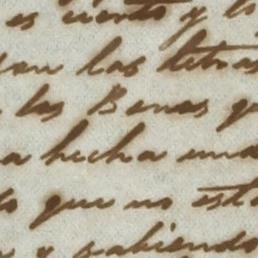 es cierto y lo
las letras
las Benas q
a hecha una
lo que no est
y sabiendo